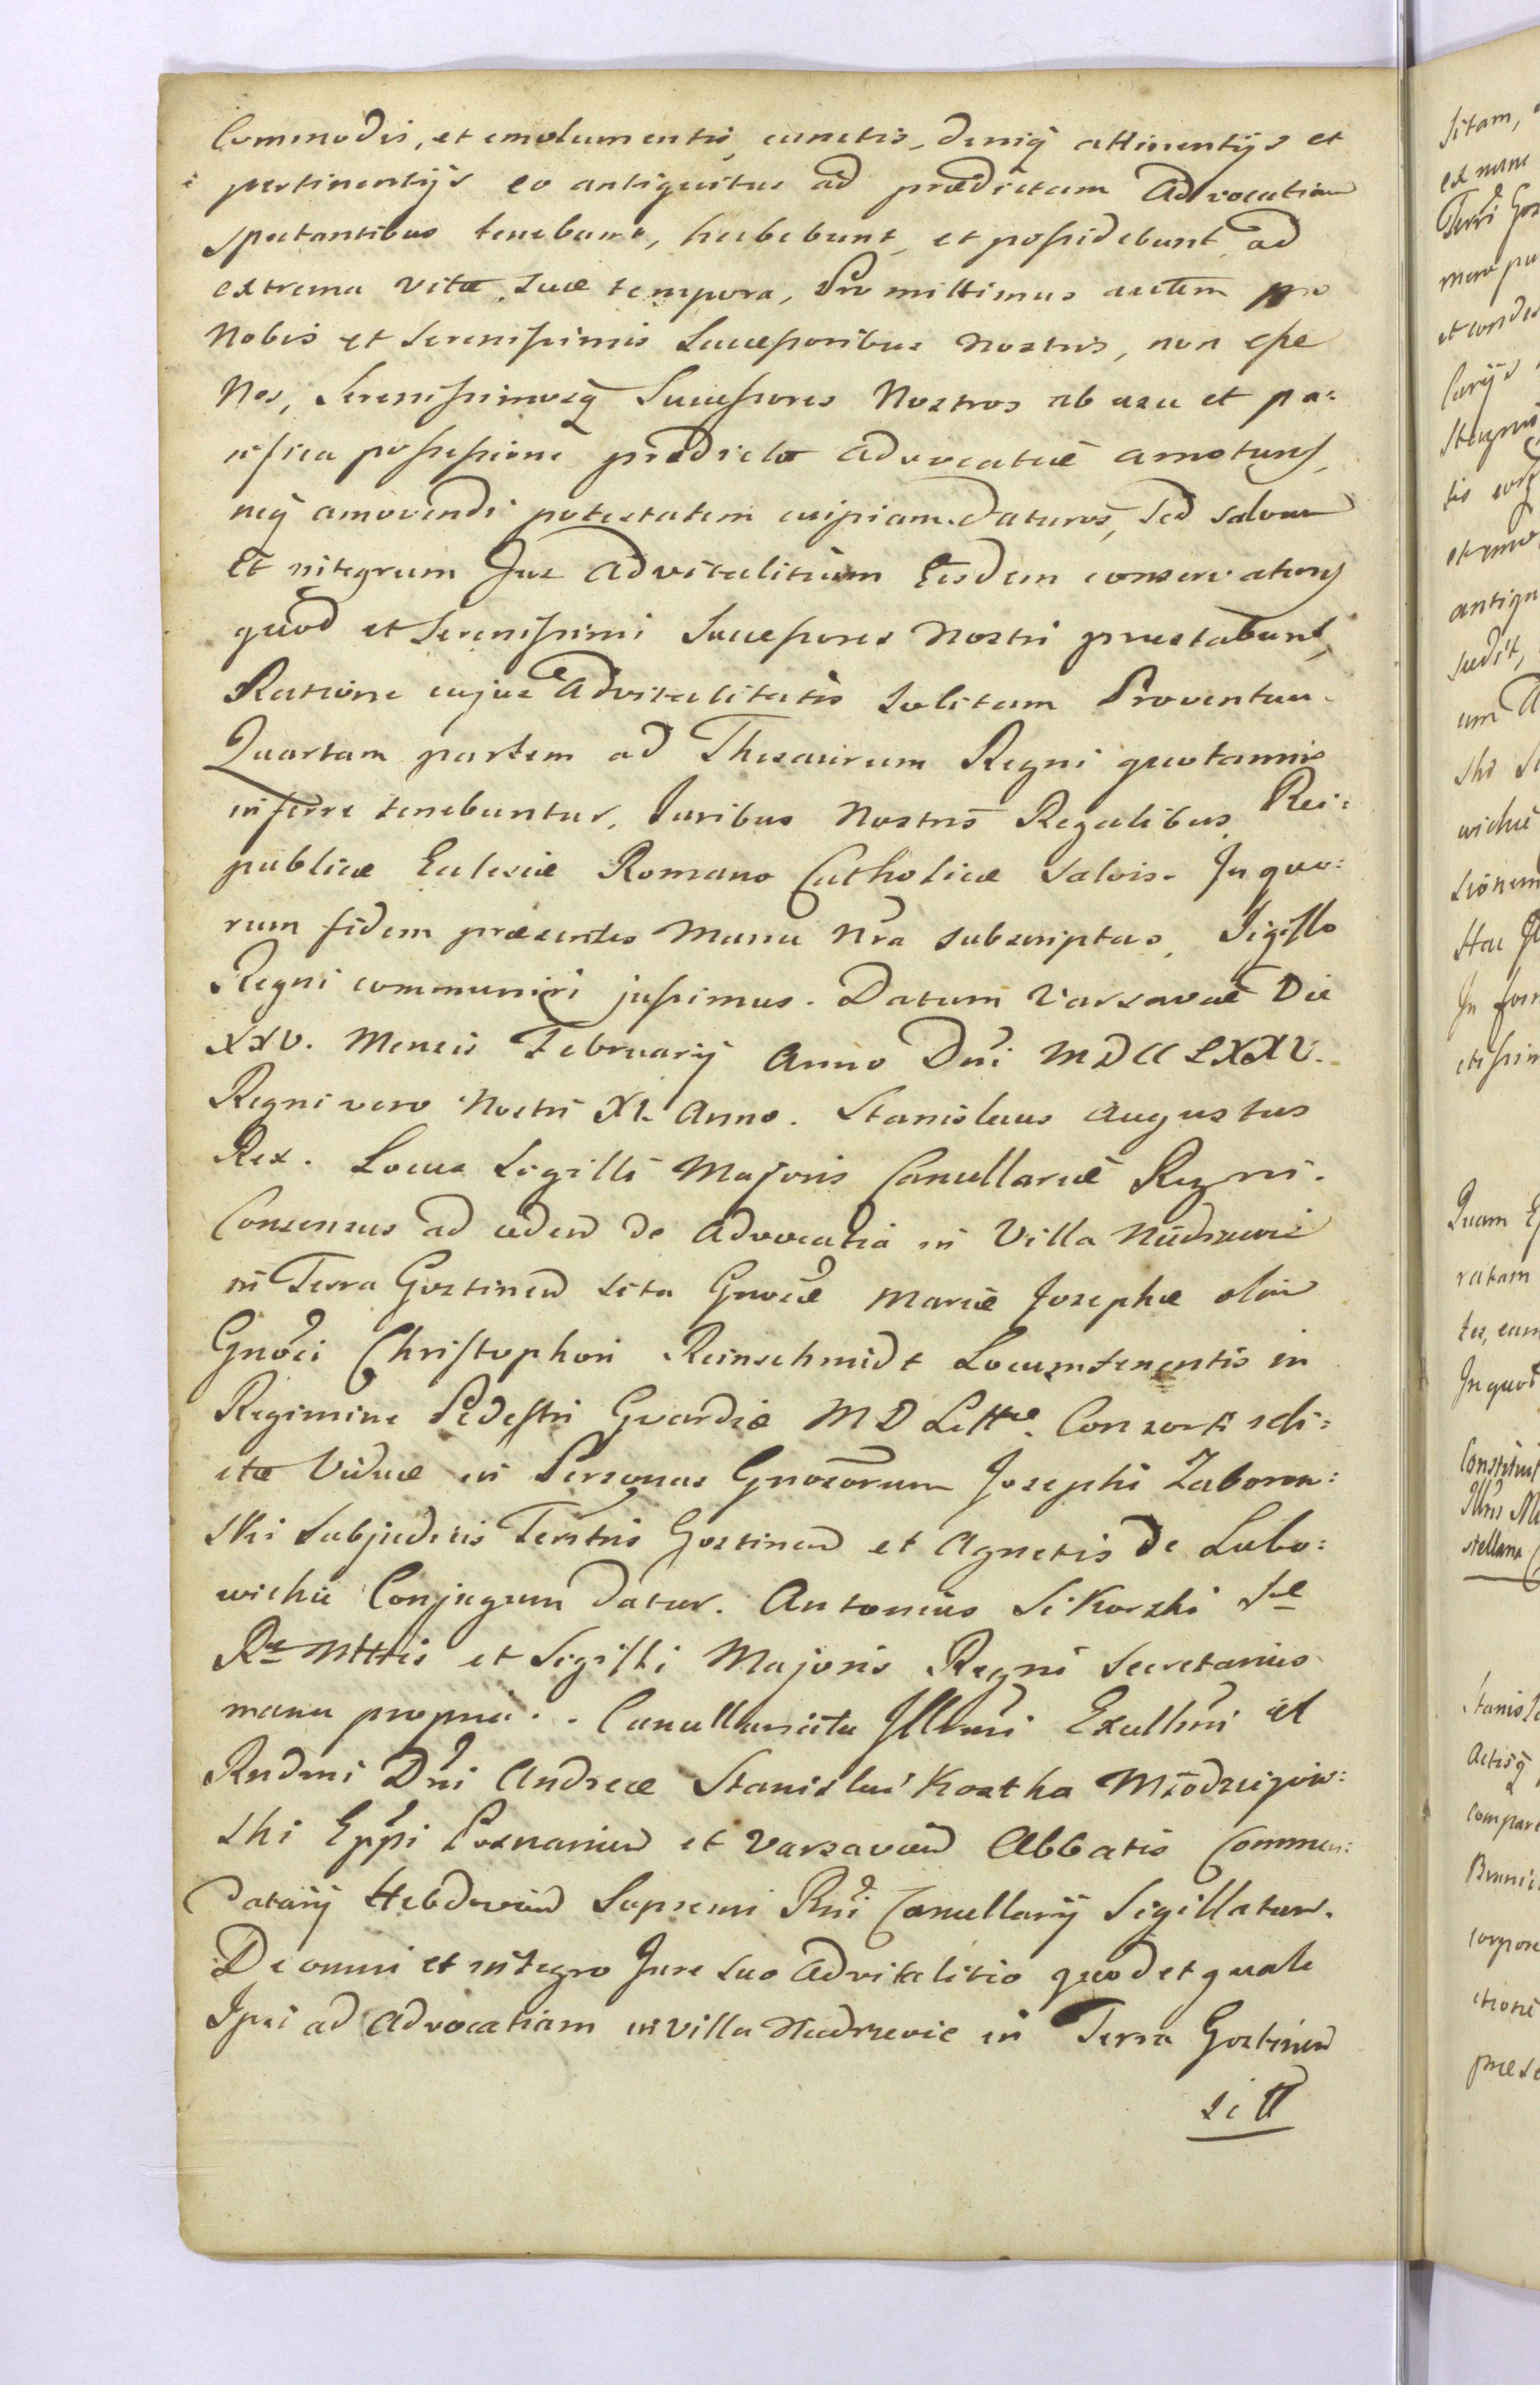 Commodis, et emolumentis, cunctis, deniq attinentijs et
pertinentijs ex antiquitus ad prædictam Advocatiam
spectantibus tenebunt, habebunt, et possidebunt, ad
extrema vitæ suæ tempora, Promittimus autem pro
Nobis et Serenissimis Successoribus Nostris, non esse
Nos, Serenissimosq Successores Nostros ab usu et pa:
cifica possessione prædictæ Advocatiæ amoturos,
neq amovendi potestatem cuipiam daturos, sed salvum
et integrum Jus Advitalitium Eisdem conservaturos
quod et Serenissimi Successores Nostri præstabunt,
Ratione cujus Advitalitatis solitam Proventuu
Quartam partem ad Thesaurum Regni quotannis
inferre tenebuntur, Juribus Nostris Regalibus, Rei:
publicæ Eclesiæ Romano Catholicæ salvis. In quo:
rum fidem præsentes Manu Nra subscriptas, Sigillo
Regni communiri jussimus. Datum Varsaviæ Die
XXV. Mensis Februarij Anno Dni MDCCLXXV.
Regni vero Nostri XI. Anno. Stanislaus Augustus
Rex. Locus Sigilli Majoris Cancellariæ Regni.
Consensus ad cedend de Advocatia in Villa Niedrzewie
in Terra Gostinen sita Gnosæ Mariæ Josephæ olim
Gnosi Christophori Reinschmidt Locumtenentis in
Regimine Pedestri Gvardiæ MD Littæ Consorti reli:
ctæ Viduæ in Personas Gnosorum Josephi Zaborow:
ski Subjudicis Terstris Gostinen et Agnetis de Lubo:
wichie Conjugum datur. Antonius Sikorski Sæ
Ræ Mttis et Sigilli Majoris Regni Secretarius
manu propria.. Cancellariatu Illmi Excellmi et
Rndmi Dni Andreæ Stanislai Kostka Młodziejow:
ski Eppi Posnanien et Varsavien Abbatis Commen:
datarij Hebdovien Supremi Rni Cancellarij Sigillatum.
De omni et integro Jure suo Advitalitio quod et quale
Ipsi ad Advocatiam in Villa Niedrzewie in Terra Gostinen
sitt
Sitam,
ex nunc
Terri Gos